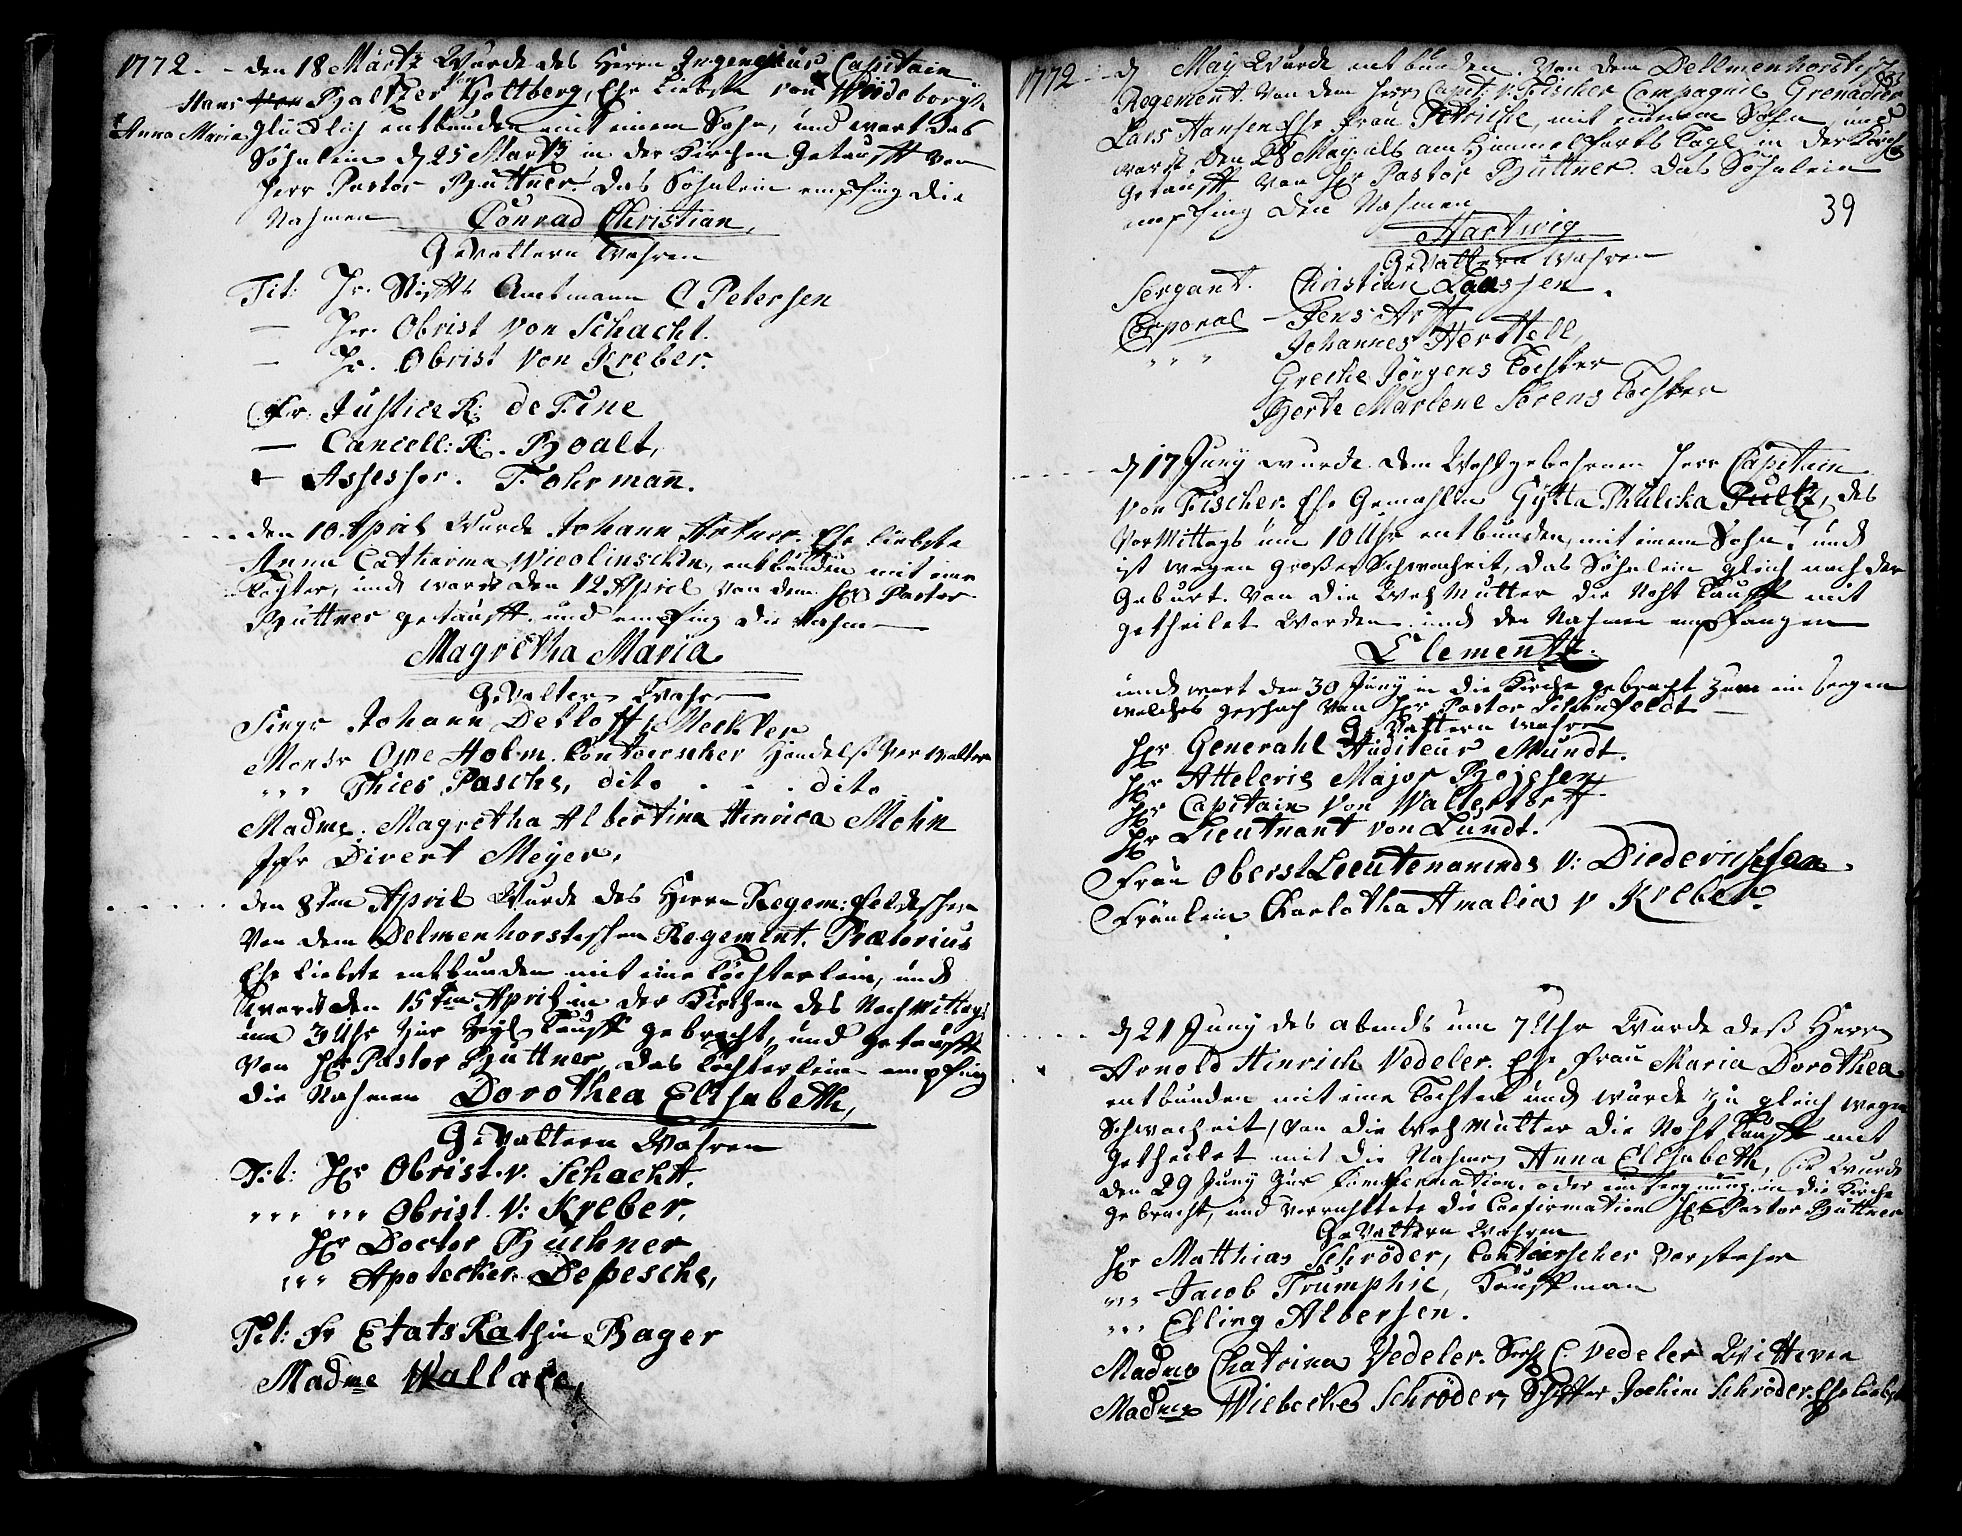 1772. - den 18 Martz Wurde des Herrn Ingenejeur Capitain
Hans Baltzer von Gottberg, Ehe Liebste von Wildeborgh
Anna Maria glücklich entbunden mit einem Sohn, und wart das
Söhnlein d 25 Martz in der Kirchen Getaufft von
Herr Pastor Büttner. Das Söhnlein empfing die
Nahmen Conrad Christian,
Gevattern Wahren
Tit: Hr. Stiffts Amtmann C Petersen
— Hr. Obrist von Schacht.
— Hr. Obrist von Kreber.
Fr. Justice R: de Fine
— Cancell: R. Boalt,
— Assessor. Fohrmann.
den 10 April Wurde Johann Artner Ehe liebste
Anna Catharina Nicolinschen, entbunden mit eine
Tochter, und wardt den 12 April von dem Hr Pastor
Büttner getaufft und empfing die Nahmen
Magretha Maria
Gevattern Wahren
Singr Johann Detloff Meckler
Monsr Ove Holm. Contoirscher Handelss Verwalter
" " " Thies Pasche, dito . . . dito
Madme. Magretha Albertina Hinrica Mohn
Jfr Divert Meyer,
den 8ten April Wurde des Herrn Regem: feldscher
Von dem Delmenhorsteschen Regement. Prætorius
Ehe Liebste entbunden mit eine Töchterlein, und
wardt den 15ten April in der Kirchen des Nachmittags
um 3 Uhr zur heyl Tauff gebracht, und getaufft
Von Hr Pastor Buttner das Töchterlein empfing
die Nahmen Dorothea Elisabeth,
Gevattern Wahren
Tit: Hr Obrist v: Schacht.
" " " " " " Obrist V: Kreber,
Hr Doctor Büchner
" " " Apotecker. Depesche,
Tit: Fr Etats Rathin Bager
Madme Wallace,
1772 - d May Wurde entbunden. Von dem Dellmenhorstisch
Regement. Von dem Herr Capit. v. Fischer Compagnie Grenadier
Lars Hansen Ehe frau Petriche, mit einem Sohn, und
wardt den 28 May als am Himmelfarts Tage in der Kirche
Getaufft Von Hr Pastor Büttner. Das Söhnlein
empfing den Nahmen
39
Hartwig
Gevattern Wahren
Sergant. Christian Lassen.
Corporal - Jens Art
" " " Johannes Hertell,
Grethe Jörgens Tochter
Berte Marlene Sörens Tochter
d 17 Juny wurde dem Wohlgebohrnen Herr Capitain
von Fischer. Ehe Gemahlin Gytta Thulcka Pultz, des
VorMittags um 10 Uhr entbunden, mit einem Sohn, und
ist wegen großer Schwacheit, das Söhnlein gleich nach der
Geburt. Von die Weh Mutter die Noht Tauff mit
getheilet Worden und den Nahmen empfangen
Clementz.
und wart den 30 Juny in die Kirche gebracht zum ein Seegen
welches geschach von Hr Pastor Schönfeldt
Gevattern wahren
Hr Generahl Auditeur Mundt.
Hr Attelerie Major Bojesen
Hr Capitain von Walterstorff
Hr Lieutnant von Lundt.
Frau Oberst Lieutenaninds V: Diederichsen
Fraülein Charlotha Amalia v Kreber.
d 21 Juny des abends um 7 Uhr Wurde deß Herrn
Arnold Hinrich Vedeler. Ehe frau Maria Dorothea
entbunden mit eine Tochter und wurde zu gleich wegen
Schwacheit, von die Weh Mutter die Noht Tauff mit
getheilet mit die Nahmen Anna Elisabeth, sie Wurde
den 29 Juny zur Confirmation, oder einseegnung in die Kirche
gebracht, und verrichttete die Confirmation Hr Pastor Büttner
Gevattern Wahren
Hr Matthias Schröder, Contoirscher Vorsteher
" " Jacob Trumphie, Kauffman
" " " Elling Albersen.
Madme Chatrina Vedeler. Seel C. Vedeler Wittwen
Madme Wiebecke Schröder, Schiffer Jochim Schröder Ehe Liebste